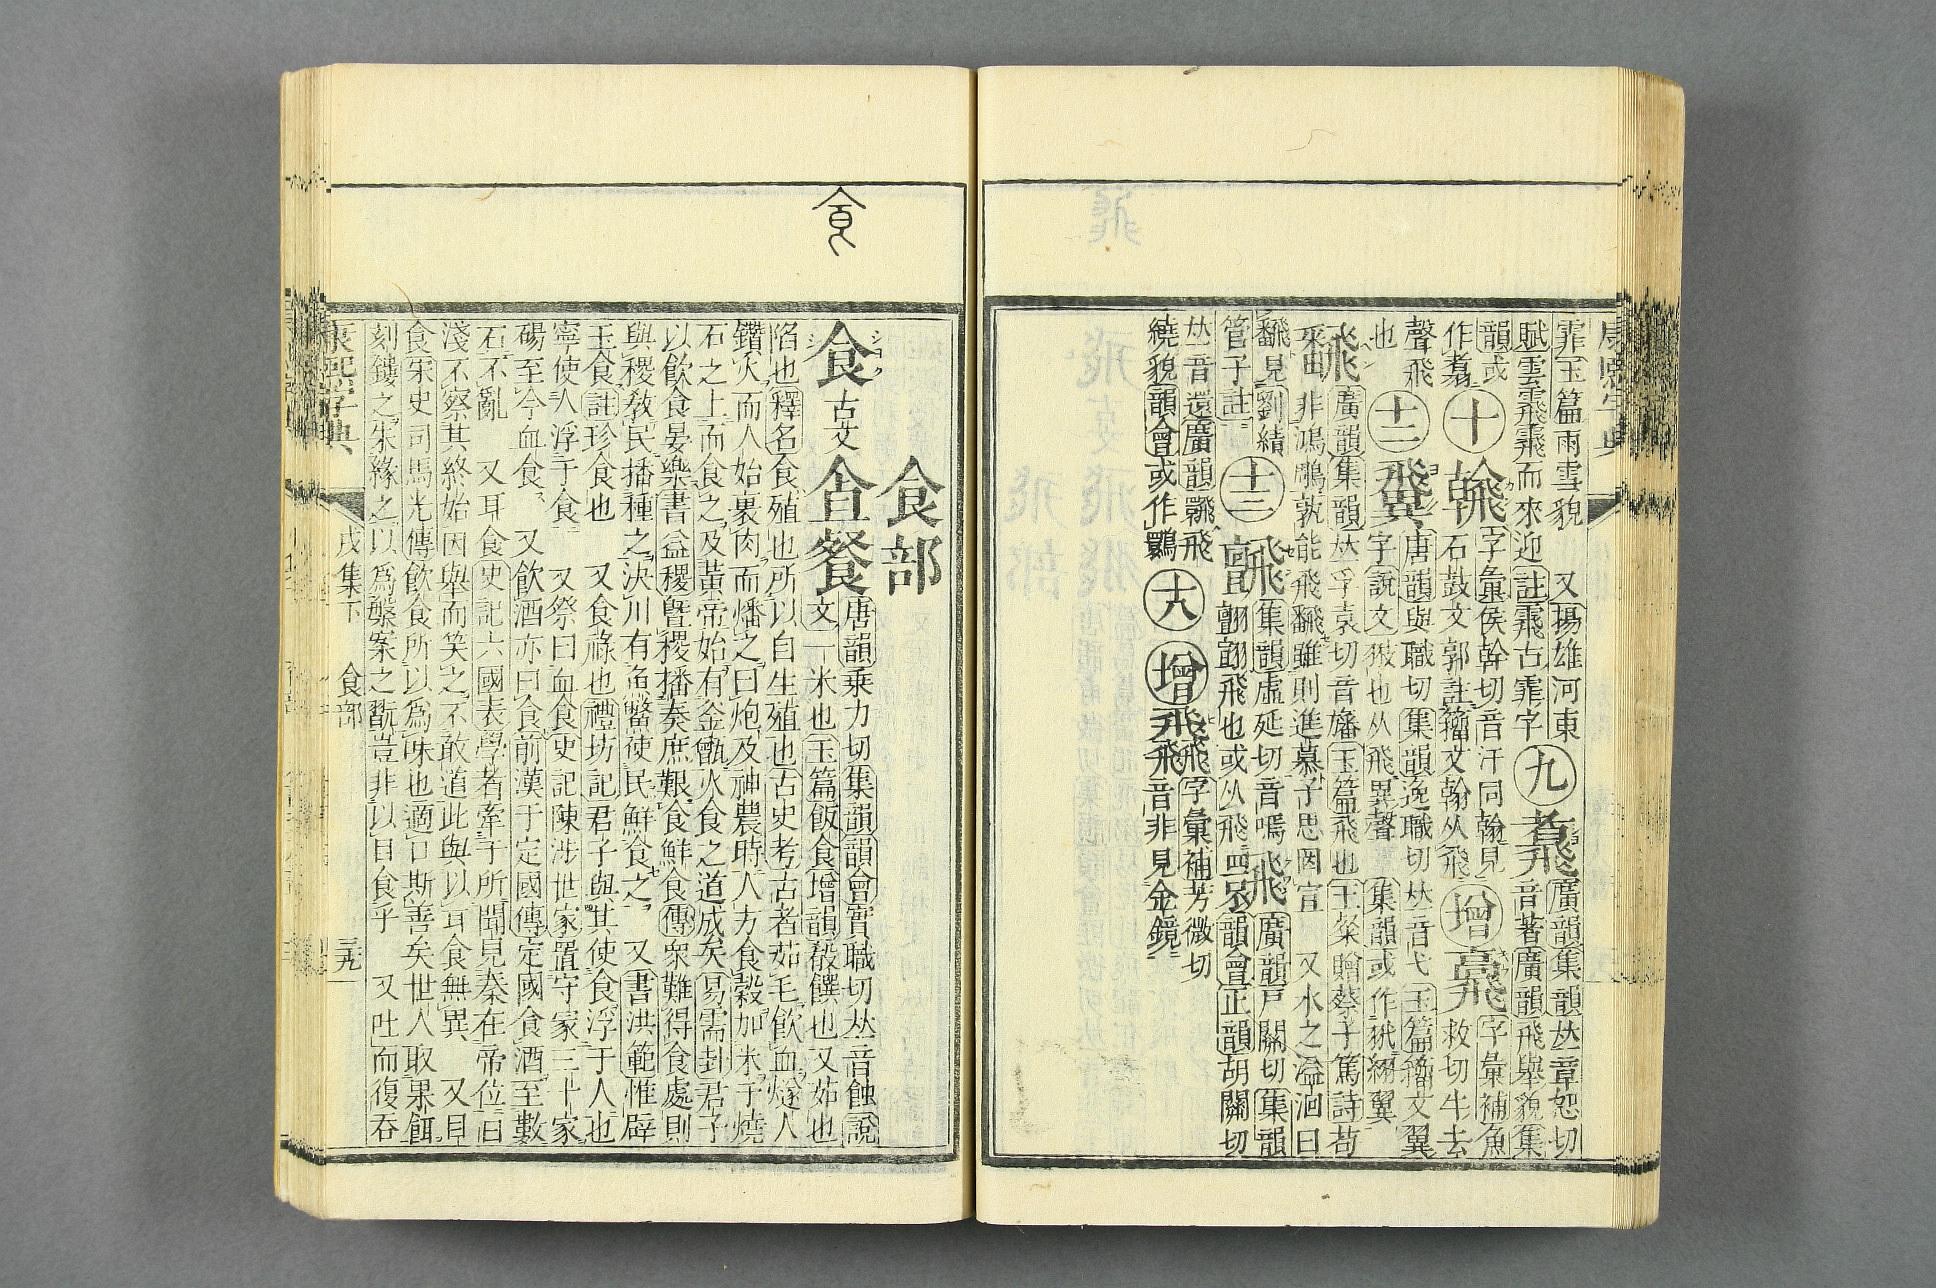 霏玉篇雨雪貌 又揚雄河東
賦雲霏霏而來迎註霏古霏字九𩙺廣韻集韻𠀤章恕切
音著廣韻飛舉貌集
韻或作翥十𩙺字彙侯幹切音汗同翰見
石鼓文郭註籀文翰从飛增字彙補魚
救切牛去
聲飛也十二𩙺唐韻與職切集韻逸職切𠀤音弋玉篇籀文翼
字說文𦐂也从飛異聲 集韻或作翼
飜廣韻集韻𠀤孚袁切音旛玉篇飛也王粲贈蔡子篤詩苟
非鴻鵰孰能飛飜雖則進慕予思罔宣 又水之溢洄曰
飜見劉績
管子註十三集韻虛延切音嘕飛廣韻戸關切集韻
翾翾飛也或从飛韻會正韻胡關切
𠀤音還廣韻飛
繞貌韻會或作十八增字彙補芳微切
音非見金鏡
食部
食
食古文
唐韻乗力切集韻韻會實職切𠀤音蝕說
文一米也玉篇飯食增韻殽饌也又茹也
䧟也釋名食殖也所以自生殖也古史考古者茹毛飲血燧人
鑽火而人始裹肉而燔之曰炮及神農時人方食穀加米于燒
石之上而食之及黃帝始有釜甑火食之道成矣易需封君子
以飲食晏樂書益稷曁稷播奏庶艱食鮮食傳衆難得食處則
與稷敎民播種之決川有魚鱉使民鮮食之 又書洪範惟辟
玉食註珍食也 又食祿也禮坊記君子與其使食浮于人也
寧使人浮于食 又祭曰血食史記陳涉世家置守冢三十家
碭至今血食 又飲酒亦曰食前漢于定國傳定國食酒至數
石不亂 又耳食史記六國表學者牽于所聞見秦在帝位日
淺不察其終始因舉而笑之不敢道此與以耳食無異 又目
食宋史司馬光傳飲食所以爲味也適口斯善矣世人取果餌
刻鏤之朱綠之以爲槃案之翫豈非以目食乎 又吐而復吞
康熙字典 戌集下 食部 三九